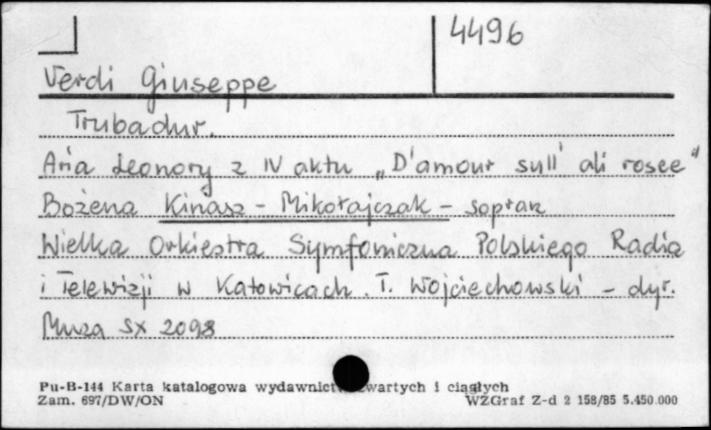 4496
Verdi Giuseppe
Trubadur.
Aria Leonory z IV aktu „D'amour sull' ali rosee"
Bożena Kinasz - Mikołajczak - sopran
Wielka Orkiestra Symfoniczna Polskiego Radia
i Telewizji w Katowicach. T. Wojciechowski - dyr.
Muza SX 2098
Pu-B-144 Karta katalogowa wydawnict zwartych i ciągłych
Zam. 697/DW/ON WZGraf Z-d 2 158/85 5.450.000